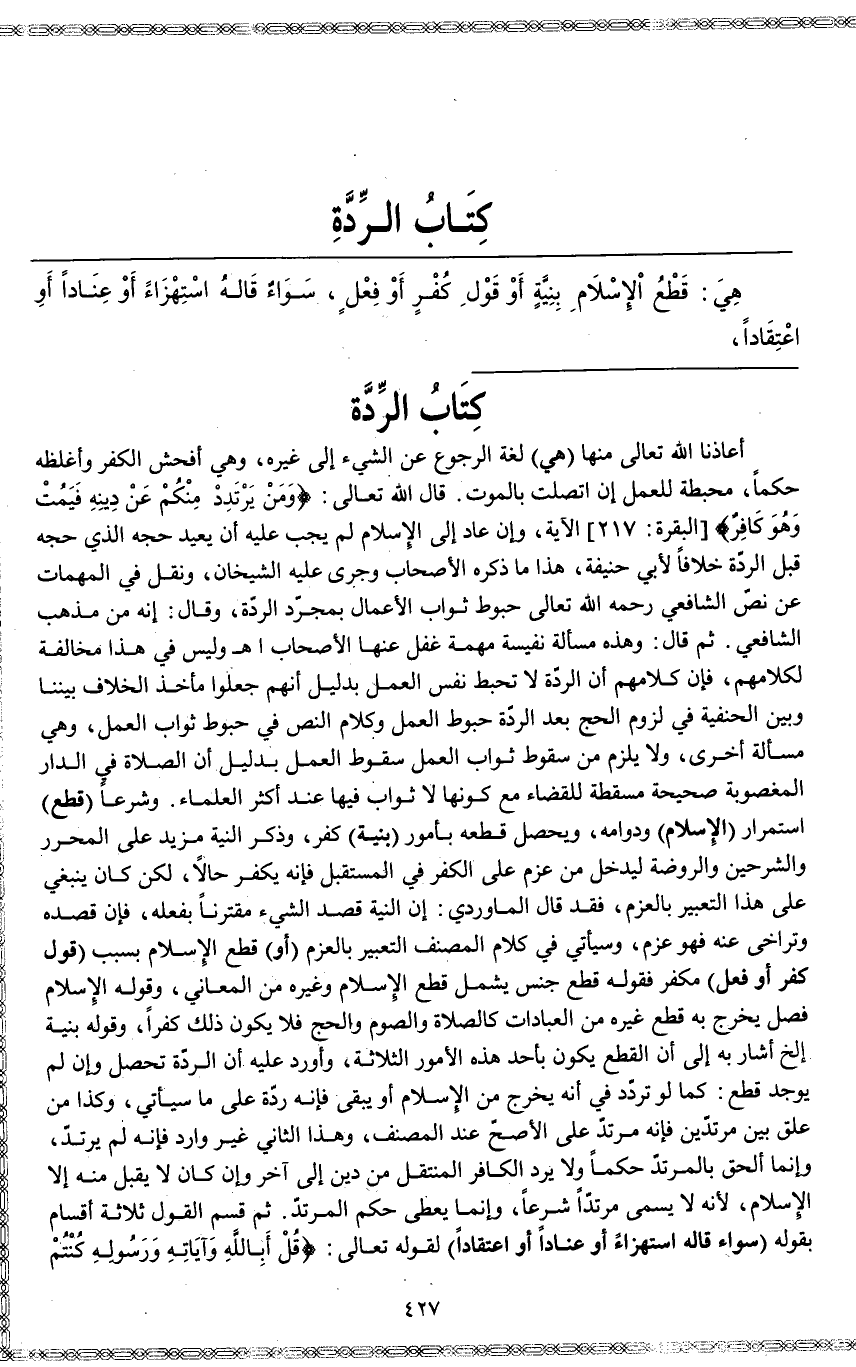 كِتَـابُ الـرِّدَّةِ
هِيَ: قَطْعُ الْإِسْلَامِ بِنِيَّةٍ أَوْ قَوْلِ كُفْـرٍ أَوْ فِعْلٍ، سَـوَاءٌ قَالَـهُ اسْتِهْزَاءً أَوْ عِنَـاداً أَوِ
اعْتِقَاداً،
كِتَابُ الرِّدَّة
أعاذنا الله تعالى منها (هي) لغة الرجوع عن الشيء إلى غيره، وهي أفحش الكفر وأغلظه
حكماً، محبطة للعمل إن اتصلت بالموت. قال الله تعـالى: ﴿وَمَنْ يَرْتَدِدْ مِنْكُمْ عَنْ دِينِهِ فَيَمُتْ
وَهُوَ كَافِرٌ﴾ [البقرة: ٢١٧] الآية، وإن عاد إلى الإسلام لم يجب عليه أن يعيد حجه الذي حجه
قبل الردّة خلافاً لأبي حنيفة، هذا ما ذكره الأصحاب وجرى عليه الشيخان، ونقـل في المهمات
عن نصّ الشافعي رحمه الله تعالى حبوط ثـواب الأعمال بمجـرّد الردّة، وقـال: إنه من مـذهب
الشافعي. ثم قال: وهذه مسألة نفيسة مهمة غفل عنهـا الأصحاب ا هـ وليس في هـذا مخالفـة
لكلامهم، فإن كـلامهم أن الردّة لا تحبط نفس العمـل بدليـل أنهم جعلوا مأخـذ الخلاف بيننـا
وبين الحنفية في لزوم الحج بعد الردّة حبوط العمل وكلام النص في حبوط ثواب العمل، وهي
مسـألة أخـرى، ولا يلزم من سقوط ثـواب العمل سقـوط العمـل بـدليل أن الصـلاة في الـدار
المغصوبة صحيحة مسقطة للقضاء مع كـونها لا ثـواب فيها عنـد أكثر العلمـاء. وشرعـاً (قطع)
استمرار (الإسلام) ودوامه، ويحصل قـطعه بـأمور (بنيـة) كفر، وذكـر النية مـزيد على المحـرر
والشرحين والروضة ليدخل من عزم على الكفر في المستقبل فإنه يكفـر حالاً، لكن كـان ينبغي
على هذا التعبير بالعزم، فقـد قال المـاوردي: إن النية قصـد الشيء مقترنـاً بفعله، فإن قصـده
وتراخى عنه فهو عزم، وسيأتي في كلام المصنف التعبير بالعزم (أو) قطع الإسـلام بسبب (قول
كفر أو فعل) مكفر فقولـه قطع جنس يشمـل قطع الإسـلام وغيره من المعـاني، وقولـه الإسلام
فصل يخرج به قطع غيره من العبادات كالصلاة والصوم والحج فلا يكون ذلك كفراً، وقوله بنيـة
إلخ أشار به إلى أن القطع يكون بأحد هذه الأمور الثلاثـة، وأورد عليه أن الـردّة تحصل وإن لم
يوجد قطع: كما لو تردّد في أنه يخرج من الإسـلام أو يبقى فإنـه ردة على ما سيـأتي، وكذا من
علق بين مرتدّين فإنه مـرتدّ على الأصحّ عند المصنف، وهـذا الثاني غيـر وارد فإنـه لم يرتـدّ،
وإنما ألحق بالمـرتدّ حكمـاً ولا يرد الكـافر المنتقـل من دين إلى آخر وإن كـان لا يقبل منـه إلا
الإسلام، لأنه لا يسمى مرتدّاً شـرعاً، وإنمـا يعطى حكم المـرتدّ. ثم قسم القول ثـلاثة أقسام
بقوله (سواء قاله استهزاءً أو عنـاداً أو اعتقاداً) لقـوله تعـالى: ﴿قُلْ أَبِـاللَّهِ وَآيَاتِـهِ وَرَسُولِـهِ كُنْتُمْ
٤٢٧